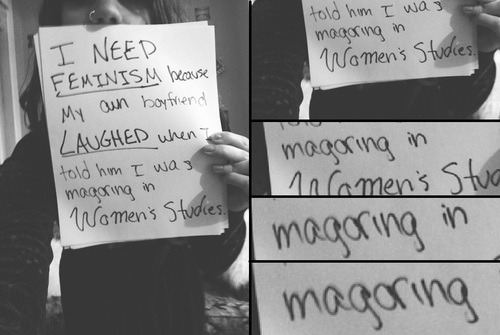 I NEED
FEMINISM because
My own boyfriend
LAUGHED when I
told him I was
magoring in
Women's Studies.
told him I was
magoring in
Women's Studies.
magoring in
Women's Stud
magoring in
magoring